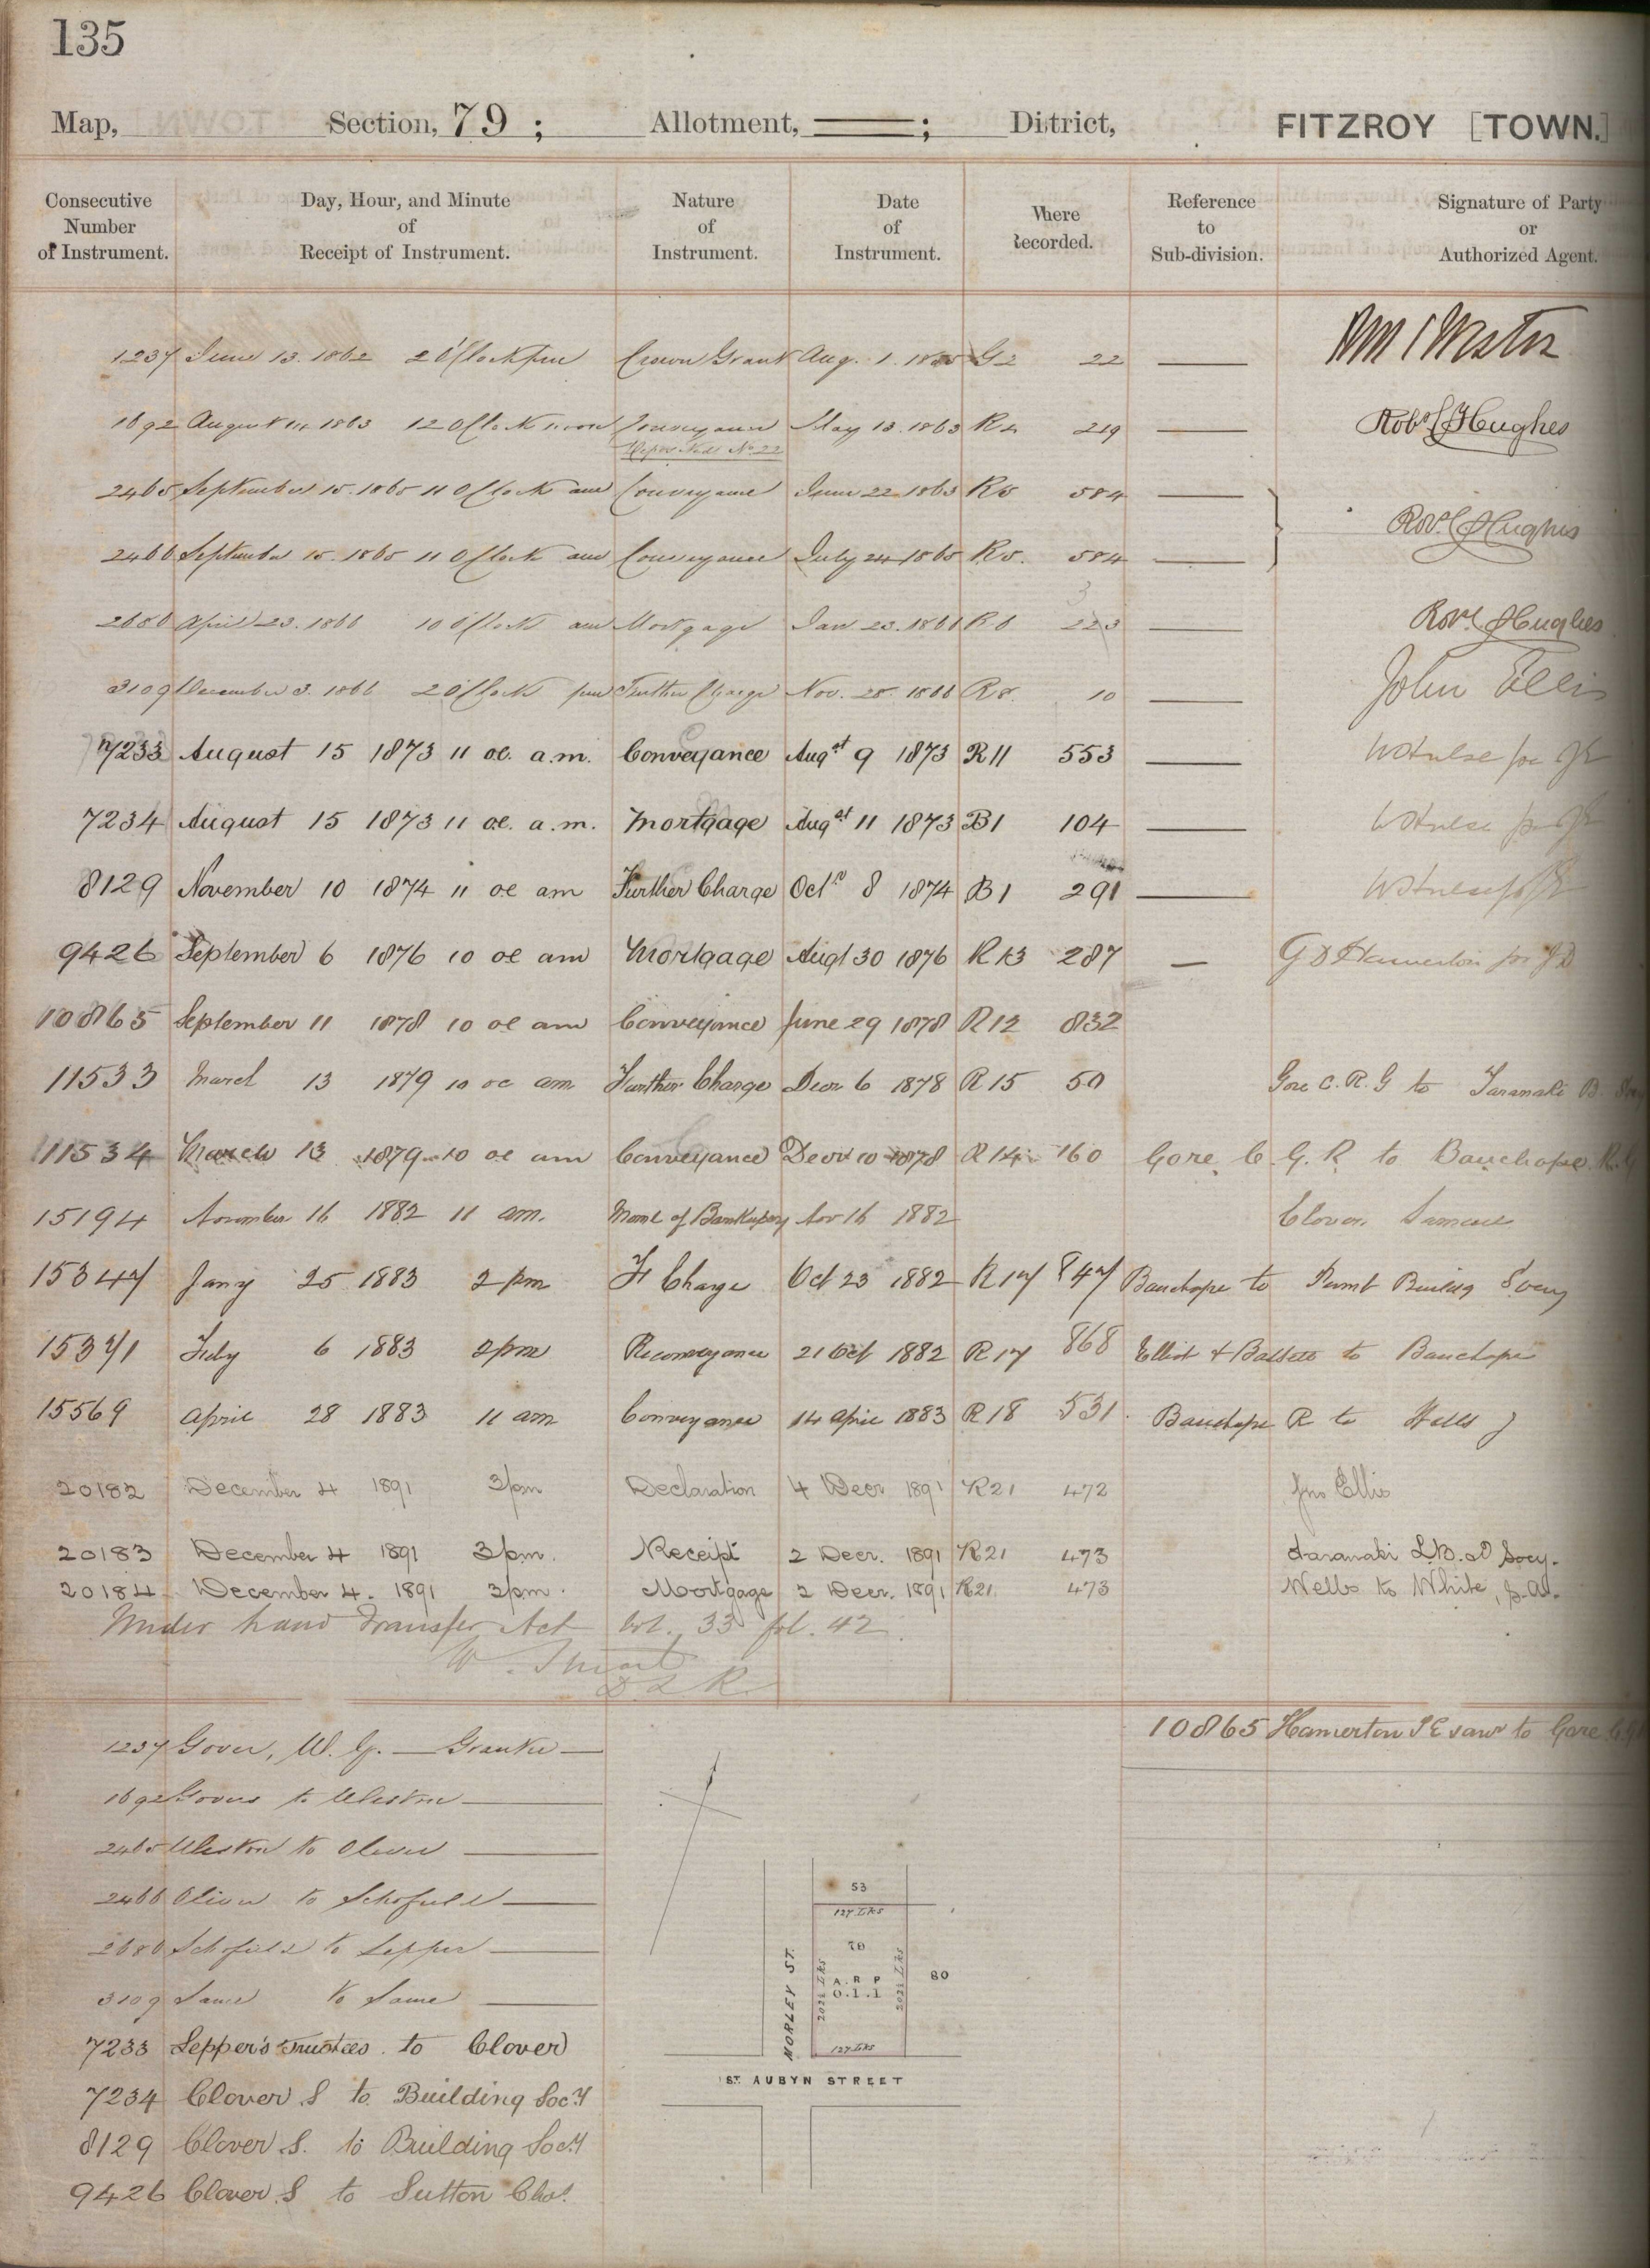 135
Map, Section, 79 ; Allotment, ——; District, FITZROY [TOWN.]
Consecutive Number of Instrument. Day, Hour, and Minute of Receipt of Instrument. Nature of Instrument. Date of Instrument. Where Recorded. Reference to Sub-division. Signature of Party or Authorized Agent.
1237 June 13. 1862 2 O'Clock pm Crown Grant Aug. 1. G2 22
1692 August 14 1863 12 O'Clock noon Conveyance May 13. 1863 R4 219 Robt Hughes
No. 22
2465 September 15. 1865 11 O'Clock am Conveyance June 22 1863 R5 584
2466 September 15. 1865 11 O'Clock am Conveyance July 24 1865 R5. 584 Hughes
2680 April 23. 1866 10 O'Clock am Mortgage Jan 23. 1861 R6 223 Hughes
3109 December 3. 1866 2 O'Clock pm Further Charge Nov. 28. 1866 R8. 10 John Ellis
7233 August 15 1873 11 oc. a.m. Conveyance Augst 9 1873 R11 553
7234 August 15 1873 11 oc. a.m. Mortgage Augst 11 1873 B1 104
8129 November 10 1874 11 oc am Further Charge Octr 8 1874 B1 291
9426 September 6 1876 10 oc am Mortgage Augt 30 1876 R13 287 G D Hamerton for
10865 September 11 1878 10 oc am Conveyance June 29 1878 R12 832
11533 March 13 1879 10 oc am Further Charge Decr 6 1878 R15 50 Gore C. R. G to Taranaki B.
11534 March 13 1879 10 oc am Conveyance Decr 10 1878 R14 160 Gore C. G. R. to Bauchope R.
15194 November 16 1882 11 am. Meml of Bankruptcy Nov 16 1882 Clover
15347 Jany 25 1883 2 pm Ft Charge Oct 23 1882 R17 847 Bauchope to Permt Building Socy
15371 Feby 6 1883 2pm Reconveyance 21 Oct 1882 R17 868 Elliot & Bassett to Bauchope
15569 April 28 1883 11 am Conveyance 14 April 1883 R18 531 Bauchope R to Wells J
20182 December 4 1891 3pm Declaration 4 Decr 1891 R21 472 Jno Ellis
20183 December 4 1891 3pm. Receipt 2 Decr. 1891 R21 473 Taranaki L.B. & I Socy.
20184 December 4. 1891 3pm. Mortgage 2 Decr. 1891 R21. 473 Wells to White, J.A.
Under Land Transfer Act Vol. 33 fol. 42
W. Stuart
D L R.
10865 Hamerton to Gore
1237 Gover, W. G. — Grantee —
1692 Gover to Weston
2465 Weston to Oliver
2466 Oliver to Schofield
2680 Schofield to Lepper
3109 Same to Same
7233 Lepper's Trustees. to Clover
7234 Clover S to Building Socy
8129 Clover S. to Building Socy
9426 Clover S to Sutton Chas.
53
127 Lks
79
A. R P
0. 1. 1
202½ Lks
202½ Lks
80
127 Lks
MORLEY ST.
ST. AUBYN STREET